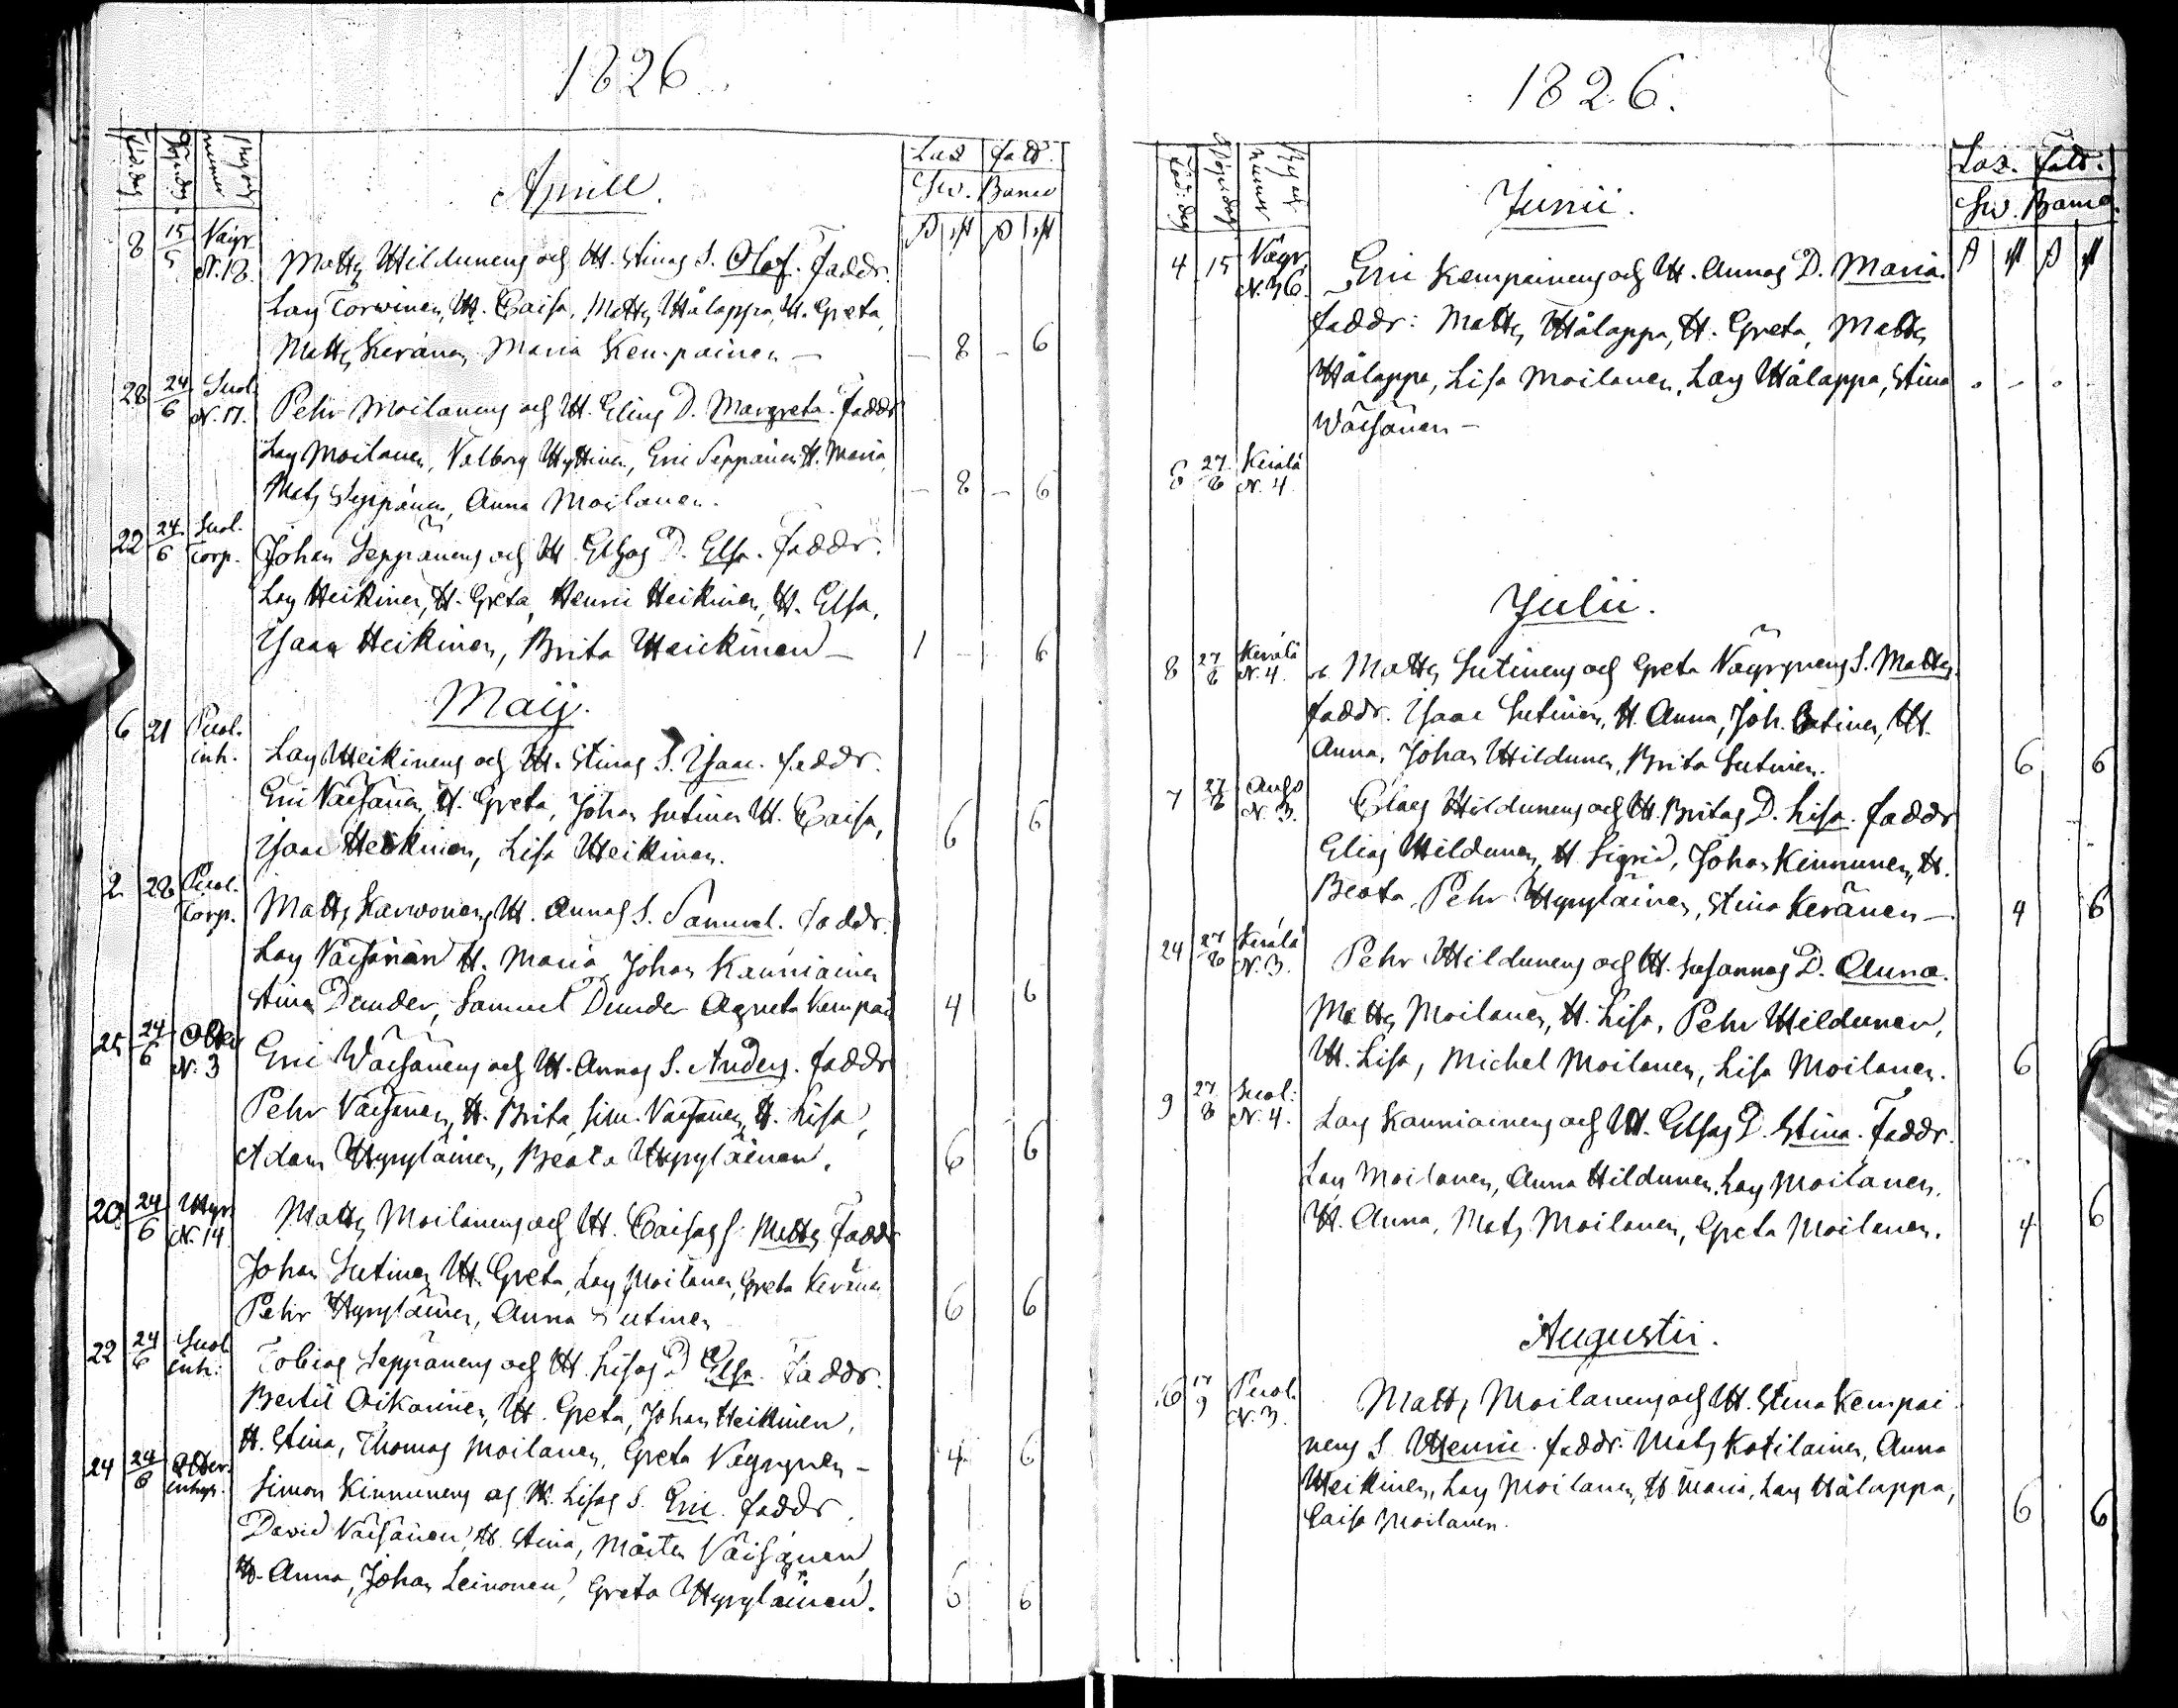 1826
Aprill.
Laz. fatt.
Sw. Banco
8 15/5 Väyr. N. 18. Matts Hildunens och H. Stinas S. Olof. Faddr.
Lars Torvinen, H. Caisa, Matts Hålappa, H. Greta,
Matts Keränen, Maria Kempainen — — 8 — 6
28 24/6 Suol. N. 17. Pehr Moilanens och H. Elins D. Margreta. Faddr
Lars Moilanen, Valborg Hyttinen, Eric Seppänen H. Maria,
Mats Seppänen, Anna Moilanen. — 8 — 6
22 24/6 Suol. Torp. Johan Seppänens och H. Elsas D. Elsa. Faddr.
Lars Heikinen, H. Greta, Henric Heikinen, H. Elsa,
Isaac Heikinen, Brita Heickinen — 1 — 6
Maij.
6 21 Puol. inh. Lars Heikinens och H. Stinas S. Isaac. faddr.
Eric Väisänen, H. Greta, Johan Sutinen H. Caisa,
Isaac Heikinen, Lisa Heikinen. 6 6
2 28 Puol. Torp. Matts Karvonens H. Annas S. Samuel. faddr.
Lars Väisänän H. Maria, Johan Kanniainen
Stina Dunder, Samuel Dunder Agneta Kempai 4 6
25 24/6 N. 3 Eric Wäisänens och H. Annas S. Anders. faddr
Pehr Väisänen, H. Brita, Sim. Väisänen, H. Lisa,
Adam Hyryläinen, Beata Hyryläinen. 6 6
20 24/6 Hyr. N. 14. Matts Moilanens och H. Caisas S. Matts Faddr
Johan Sutinen H. Greta, Lars Moilanen, Greta Keränen
Pehr Hyryläinen, Anna Sutinen 6 6
22 24/6 Suol. inh: Tobias Seppänens och H. Lisas D Elsa. Faddr.
Bertil Oikarinen, H. Greta, Johan Heikinen,
H. Stina, Thomas Moilanen, Greta Vegrynen — 4 6
24 24/6 Simon Kinnunens och H. Lisas S. Eric. faddr.
David Väisänen, H. Stina, Mårten Väisänen,
H. Anna, Johan Leinonen, Greta Hyryläinen. 6 6
1826.
Laz. fatt:
Sw. Banco.
Junii.
4 15 Väyr. N. 36. Eric Kempainens och H. Annas D. Maria.
faddr: Matts Hålappa, H. Greta, Matts
Hålappa, Lisa Moilanen, Lars Hålappa, Stina
Wäisänen —
27/8 Kerälä N. 4.
Julii.
8 27/8 Kerälä N. 4. Matts Sutinens och Greta Väyrynens S. Matts.
faddr. Isaac Sutinen, H. Anna, Joh. Sutinen, H.
Anna, Johan Hildunen, Brita Sutinen. 6 6
7 27/8 N. 3. Claes Hildunens och H. Britas D. Lisa. faddr
Elias Hildunen, H. Sigrid, Johan Kinnunen, H.
Beata, Pehr Hyryläinen, Stina Keränen — 4 6
24 27/8 Kerälä N. 3. Pehr Hildunens och H. Susannas D. Anna.
Matts Moilanen, H. Lisa, Pehr Hildunen,
H. Lisa, Michel Moilanen, Lisa Moilanen. 6
9 27/8 Suol: N. 4. Lars Kanniainens och H. Elsas D. Stina. Faddr.
Lars Moilanen, Anna Hildunen, Lars Moilanen,
H. Anna, Mats Moilanen, Greta Moilanen. 4 6
Augustii.
17/9 Puol. N. 3. Matts Moilanens och H. Stina Kempai
nens S. Henric. faddr. Mats Kotilainen, Anna
Heikinen, Lars Moilanen, H. Maria, Lars Hålappa,
Caisa Moilanen. 6 6